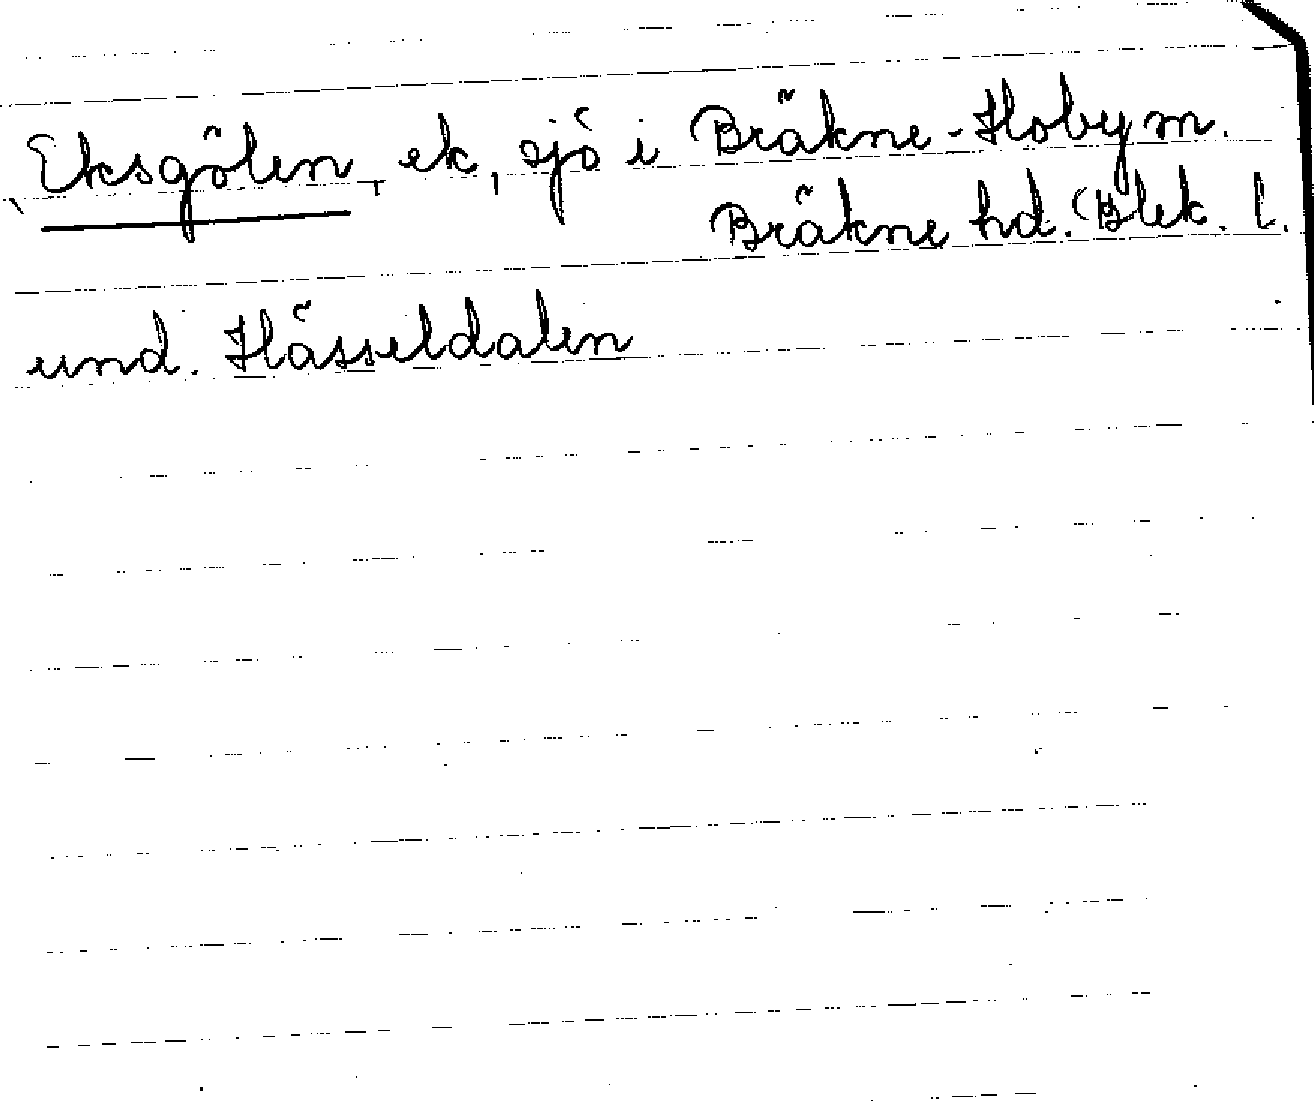 Eksgölen, ek, sjö i Bräkne-Hoby sn.
Bräkne hd. Blek. l.
und. Hässeldalen